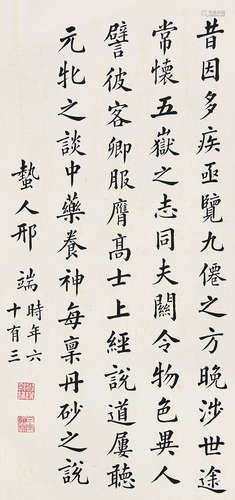 昔因多疾亟覽九僊之方晚涉世途
常懷五嶽之志同夫關令物色異人
譬彼客卿服膺高士上經說道屢聽
元牝之談中藥養神每稟丹砂之說
蟄人邢端時年六
十有三